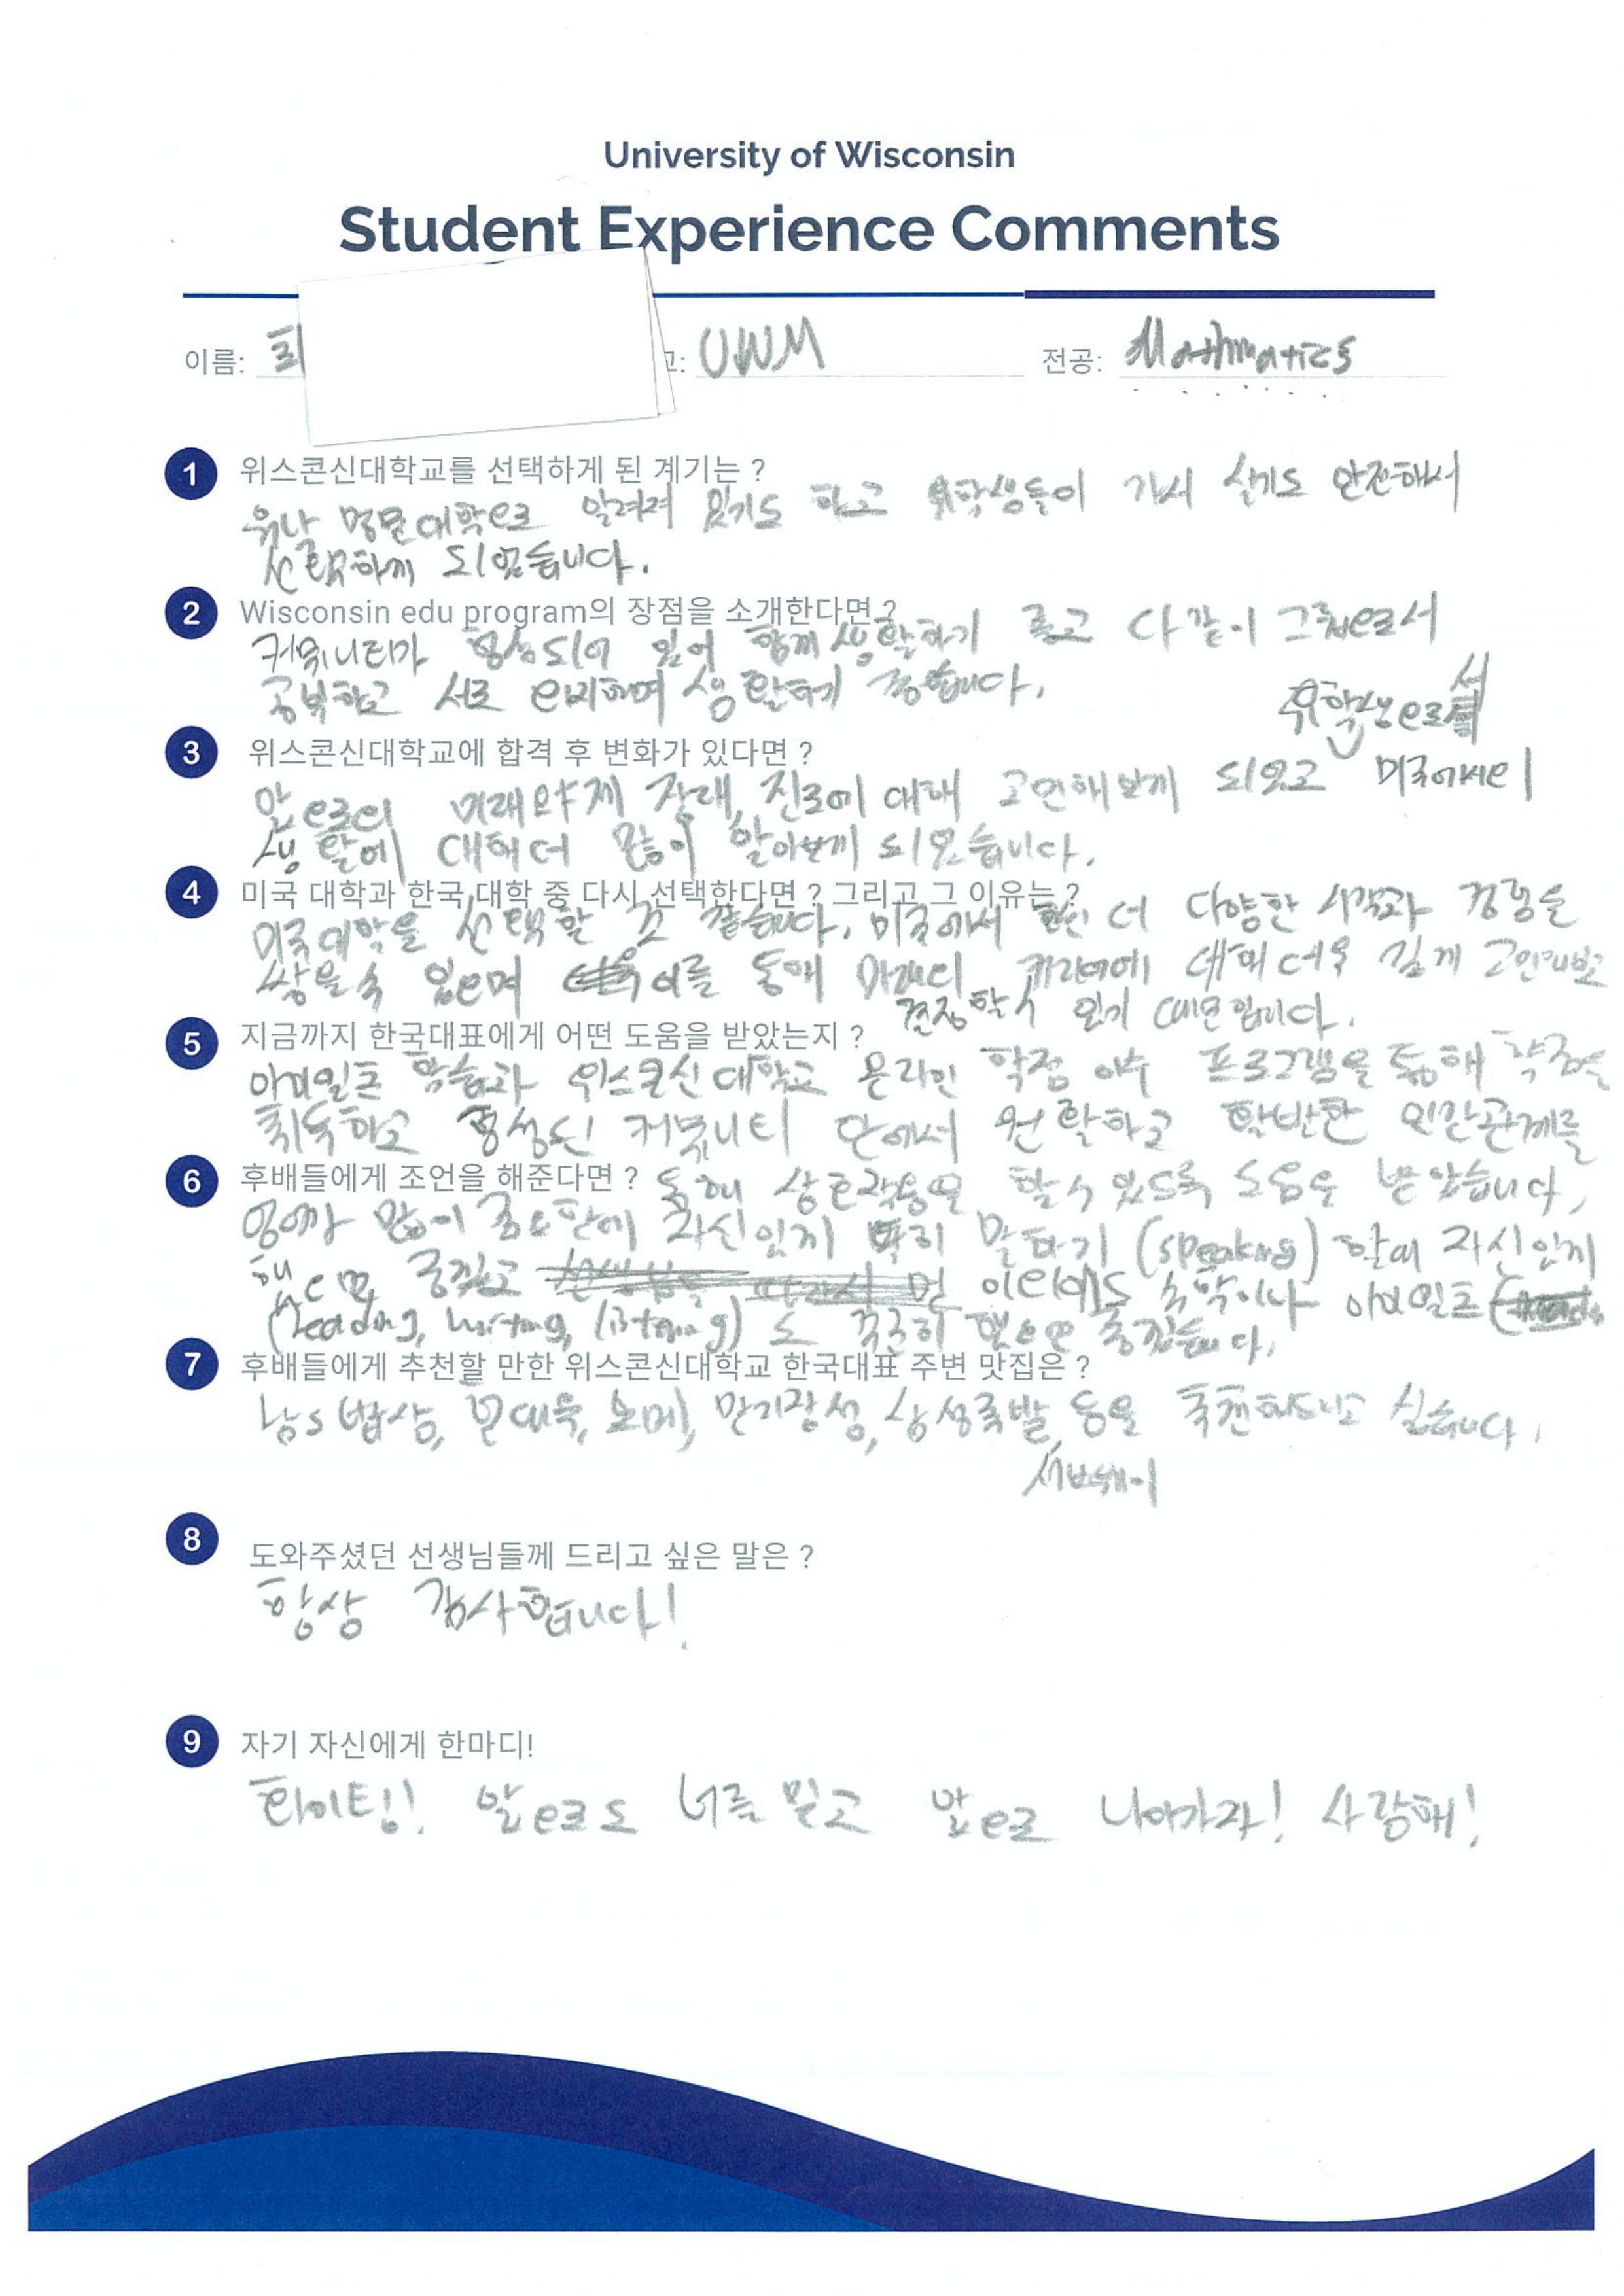 University of Wisconsin
Student Experience Comments
이름: 최 교: UWM 전공: Mathmatics
1 위스콘신대학교를 선택하게 된 계기는 ?
워낙 명문대학으로 알려져 있기도 하고 유학생들이 가서 살기도 안전해서
선택하게 되었습니다.
2 Wisconsin edu program의 장점을 소개한다면 ?
커뮤니티가 형성되어 있어 함께 생활하기 좋고 다같이 그룹으로서
공부하고 서로 의지하며 생활하기 좋습니다.
3 위스콘신대학교에 합격 후 변화가 있다면 ?
유학생으로서
앞으로의 미래와 제 장래, 진로에 대해 고민해보게 되었고 미국에서의
생활에 대해 더 많이 알아보게 되었습니다.
4 미국 대학과 한국 대학 중 다시 선택한다면 ? 그리고 그 이유는 ?
미국대학을 선택할 것 같습니다. 미국에서 더 다양한 시각과 경험을
쌓을 수 있으며 이를 통해 커리어에 대해 더욱 깊게 고민해보고
결정할 수 있기 때문입니다.
5 지금까지 한국대표에게 어떤 도움을 받았는지 ?
아이엘츠 학습과 위스콘신 대학교 온라인 학점 이수 프로그램을 통해 학점을
취득하고 형성된 커뮤니티 안에서 원활하고 활발한 인간관계를
6 후배들에게 조언을 해준다면 ?
통해 상호작용을 할 수 있도록 도움을 받았습니다.
영어가 많이 중요한데 자신있게 특히 말하기 (speaking) 할때 자신있게
했으면 좋겠고 이외에도 수학이나 아이엘츠
(reading, writing, listening) 도 꾸준히 했으면 좋겠습니다.
7 후배들에게 추천할 만한 위스콘신대학교 한국대표 주변 맛집은 ?
남s밥상, 본대육, 소메, 만기장성, 삼성족발, 등을 추천해드리고 싶습니다.
서브웨이
8 도와주셨던 선생님들께 드리고 싶은 말은 ?
항상 감사합니다!
9 자기 자신에게 한마디!
화이팅! 앞으로도 너를 믿고 앞으로 나아가자! 사랑해!